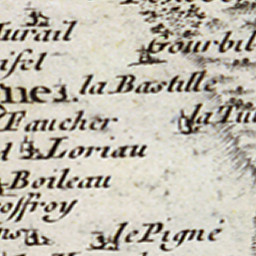 urail
Gourbil
isel
la Bastille
ne
Faucher
la Tui
Loriau
Boileau
offroy
le Pigné